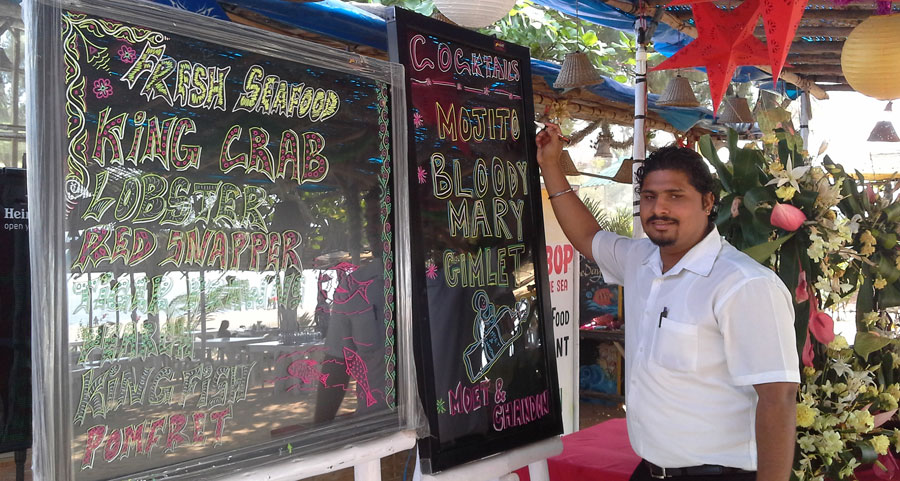 FRESH SEAFOOD
KING CRAB
LOBSTER
RED SNAPPER
KINGFISH
POMFRET
COCKTAILS
MOJITO
BLOODY
MARY
GIMLET
MOET &
CHANDON
Hei
open y